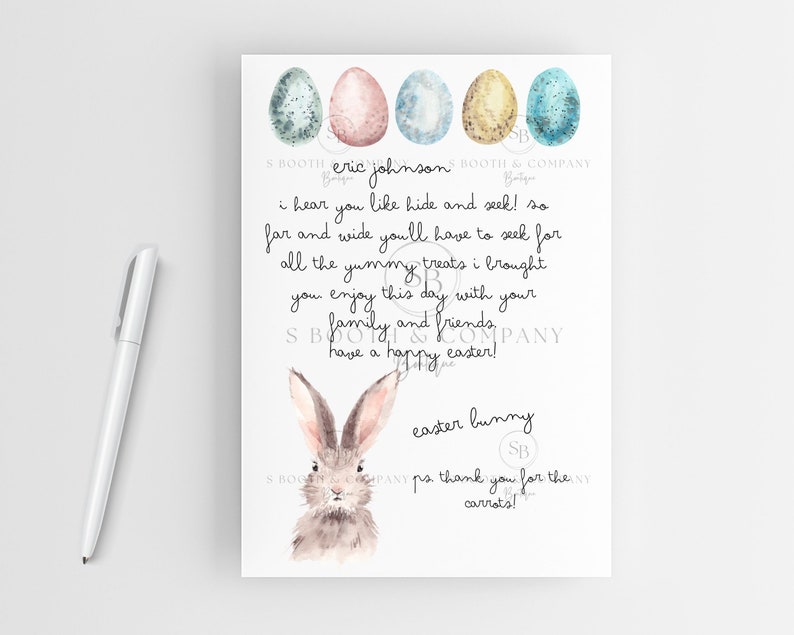 S BOOTH & COMPANY S BOOTH & COMPANY
Boutique Boutique
eric johnson
i hear you like hide and seek! so
far and wide you'll have to seek for
all the yummy treats i brought
you. enjoy this day with your
family and friends.
have a happy easter!
SB
S BOOTH & COMPANY
Boutique
easter bunny
SB
S BOOTH & COMPANY S BOOTH & COMPANY
Boutique
p.s. thank you for the
carrots!